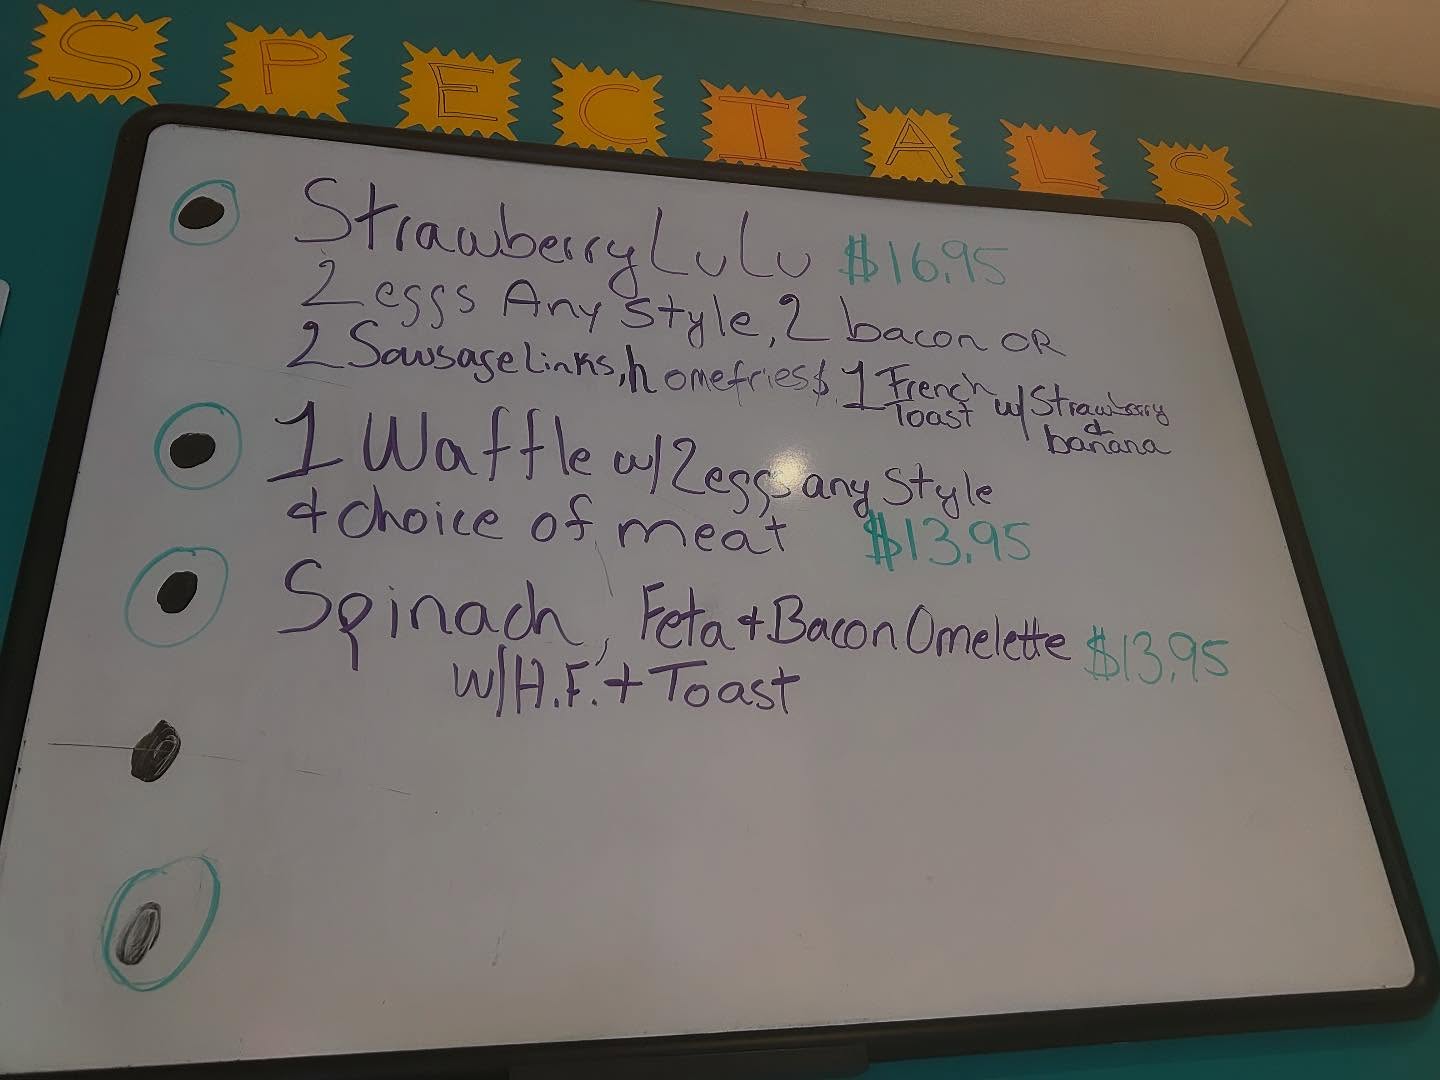 SPECIALS
Strawberry LuLu $16.95
2 eggs Any style, 2 bacon OR
2 Sausage links, homefries & 1 French Toast w/ Strawberry & banana
1 Waffle w/ 2 eggs any style
& choice of meat $13.95
Spinach, Feta + Bacon Omelette $13.95
w/ H.F. + Toast